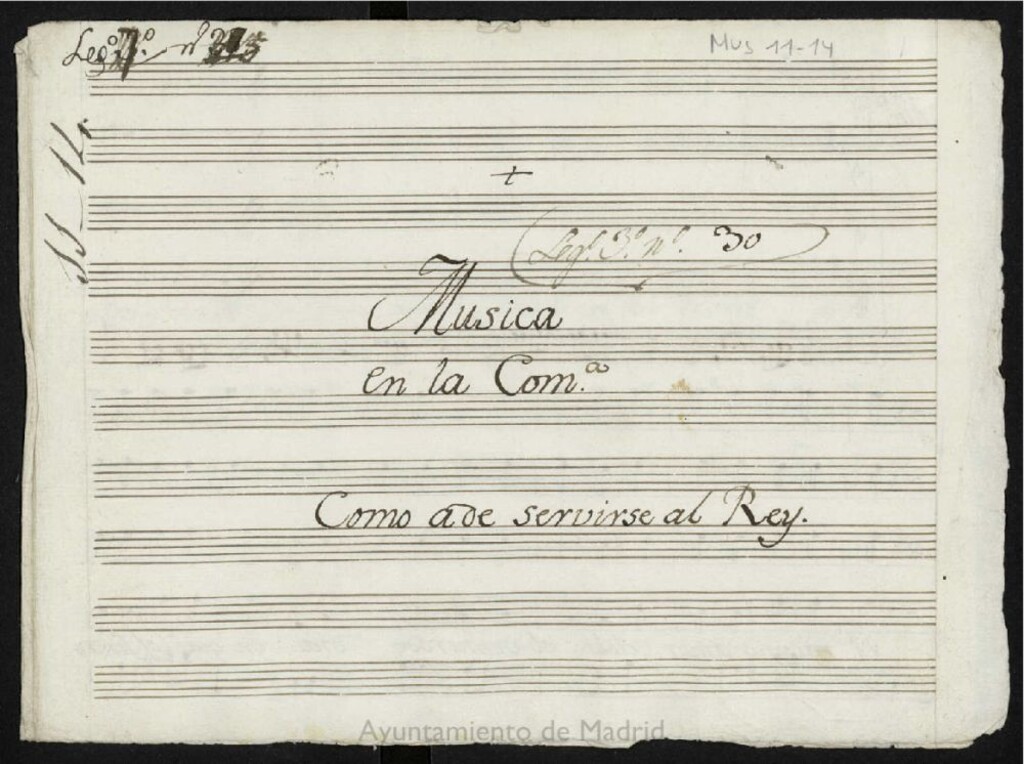 Leg.º nº
Mus 11-14
+
Leg.º 3.º n.º 30
Musica
en la Com.ª
Como ade servirse al Rey.
Ayuntamiento de Madrid